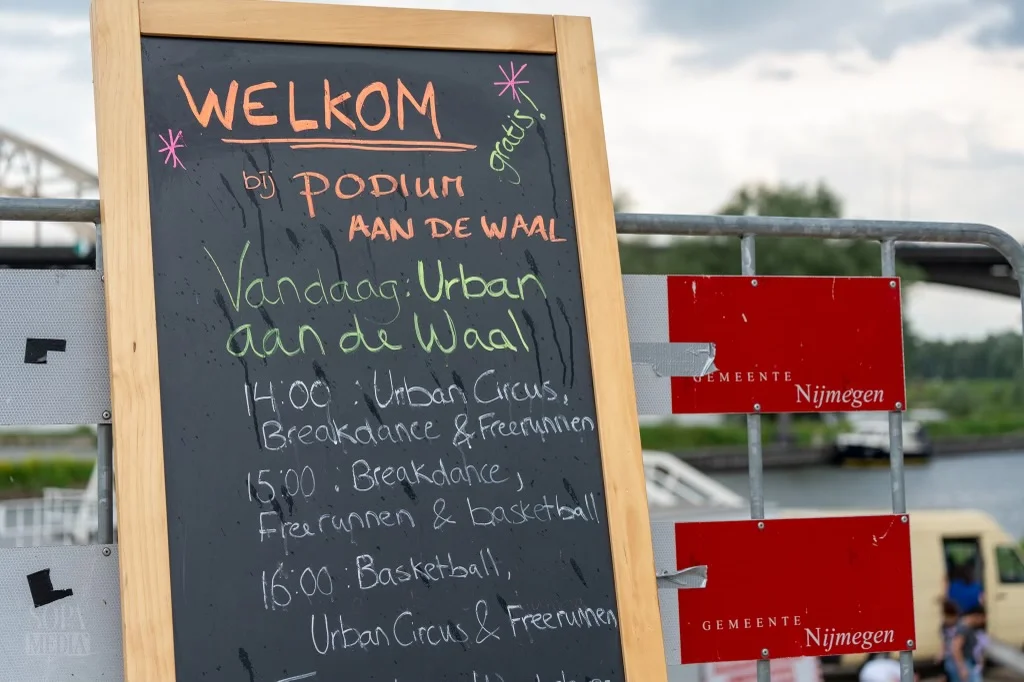 WELKOM
gratis!
bij PODIUM
AAN DE WAAL
Vandaag: Urban
aan de Waal
14:00 : Urban Circus,
Breakdance & Freerunnen
15:00 : Breakdance,
Freerunnen & basketball
16:00 : Basketball,
Urban Circus & Freerunnen
GEMEENTE
Nijmegen
GEMEENTE
Nijmegen
SOPA
MEDIA